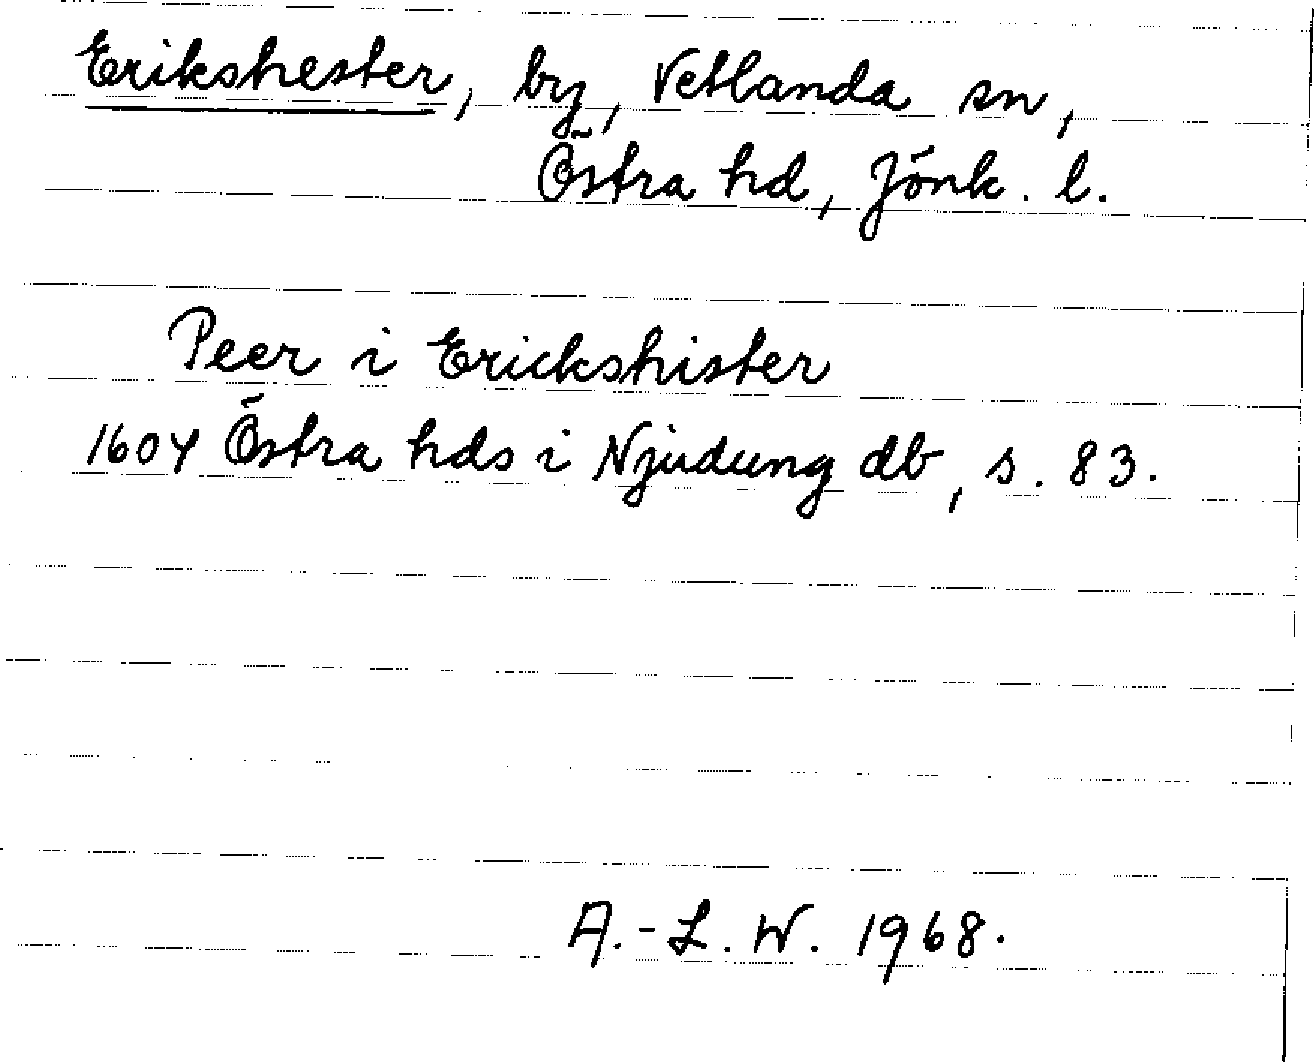 Erikshester, by, Vetlanda sn,
Östra hd, Jönk. l.
Peer i Erickshister
1604 Östra hds i Njudung db, s. 83.
A.-L. W. 1968.